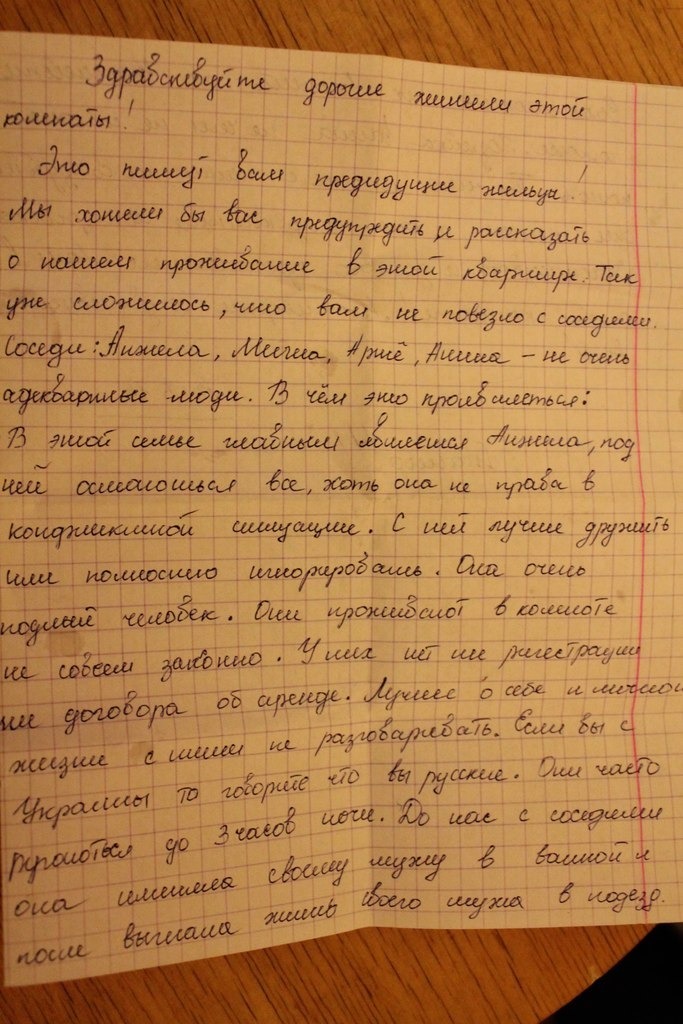 Здравствуйте дорогие жители этой
комнаты!
Это пишут вам предидущие жильцы!
Мы хотели бы вас предупредить и рассказать
о нашем проживание в этой квартире. Так
уже сложилось, что вам не повезло с соседями.
Соседи: Анжела, Миша, Артё, Алина – не очень
адекватные люди. В чём это проявляеться:
В этой семье главным является Анжела, под
ней остаються все, хоть она не права в
конфликтной ситуации. С ней лучше дружить
или полностю игнорировать. Она очень
подлый человек. Они проживают в комнате
не совсем законно. У них нет ни регестрации
ни договора об аренде. Лучше о себе и личной
жизни с ними не разговаревать. Если вы с
Украины то говорите что вы русские. Они часто
ругаються до 3 часов ночи. До нас с соседями
она изменила своему мужу в ванной и
после выгнала жить своего мужа в подезд.